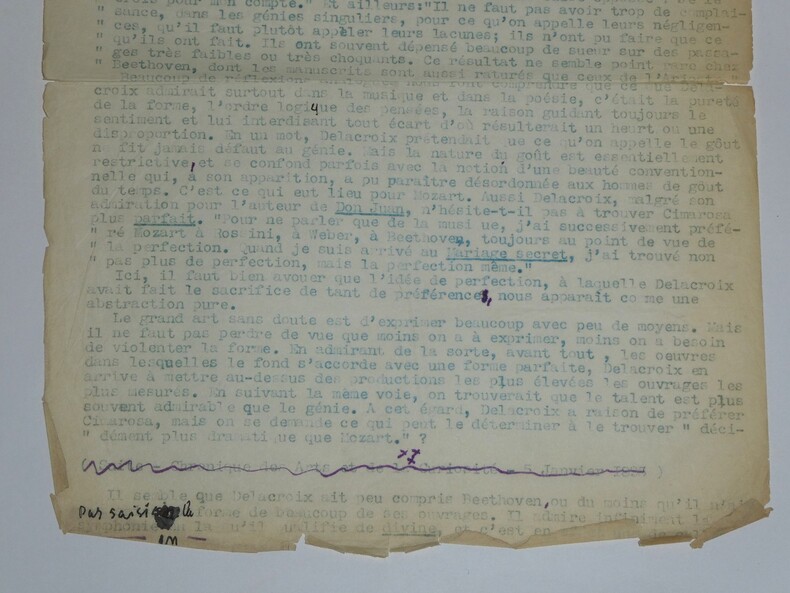 pour mon compte." Et ailleurs:"Il ne faut pas avoir trop de complai-
" sance, dans les génies singuliers, pour ce qu'on appelle leurs négligen-
" ces, qu'il faut plutôt appeler leurs lacunes; ils n'ont pu faire que ce
" qu'ils ont fait. Ils ont souvent dépensé beaucoup de sueur sur des passa-
" ges très faibles ou très choquants. Ce résultat ne semble point rare chez
" Beethoven, dont les manuscrits sont aussi raturés que ceux de l'Arioste "
Beaucoup de réflexions nous font comprendre que ce que Dela-
croix admirait surtout dans la musique et dans la poésie, c'était la pureté
de la forme, l'ordre logique des pensées, la raison guidant toujours le
sentiment et lui interdisant tout écart d'où résulterait un heurt ou une
disproportion. En un mot, Delacroix prétendait que ce qu'on appelle le goût
ne fit jamais défaut au génie. Mais la nature du goût est essentiellement
restrictive, et se confond parfois avec la notion d'une beauté convention-
nelle qui, à son apparition, a pu paraître désordonnée aux hommes de goût
du temps. C'est ce qui eut lieu pour Mozart. Aussi Delacroix, malgré son
admiration pour l'auteur de Don Juan, n'hésite-t-il pas à trouver Cimarosa
plus parfait. "Pour ne parler que de la musi ue, j'ai successivement préfé-
" ré Mozart à Rossini, à Weber, à Beethoven, toujours au point de vue de
" la perfection. Quand je suis arrivé au Mariage secret, j'ai trouvé non
" pas plus de perfection, mais la perfection même."
Ici, il faut bien avouer que l'idée de perfection, à laquelle Delacroix
avait fait le sacrifice de tant de préférences, nous apparait co me une
abstraction pure.
Le grand art sans doute est d'exprimer beaucoup avec peu de moyens. Mais
il ne faut pas perdre de vue que moins on a à exprimer, moins on a besoin
de violenter la forme. En admirant de la sorte, avant tout , les oeuvres
dans lesquelles le fond s'accorde avec une forme parfaite, Delacroix en
arrive à mettre au-dessus des productions les plus élevées les ouvrages les
plus mesurés. En suivant la même voie, on trouverait que le talent est plus
souvent admirable que le génie. A cet égard, Delacroix a raison de préférer
Cimarosa, mais on se demande ce qui peut le déterminer à le trouver " déci-
" dément plus dramatique que Mozart." ?
Chronique des Arts et de la Curiosité - 5 Janvier )
Il semble que Delacroix ait peu compris Beethoven, ou du moins qu'il n'ait
pas saisi la forme de beaucoup de ses ouvrages. Il admire infiniment la
symphonie en la qu'il qualifie de divine, et c'est en